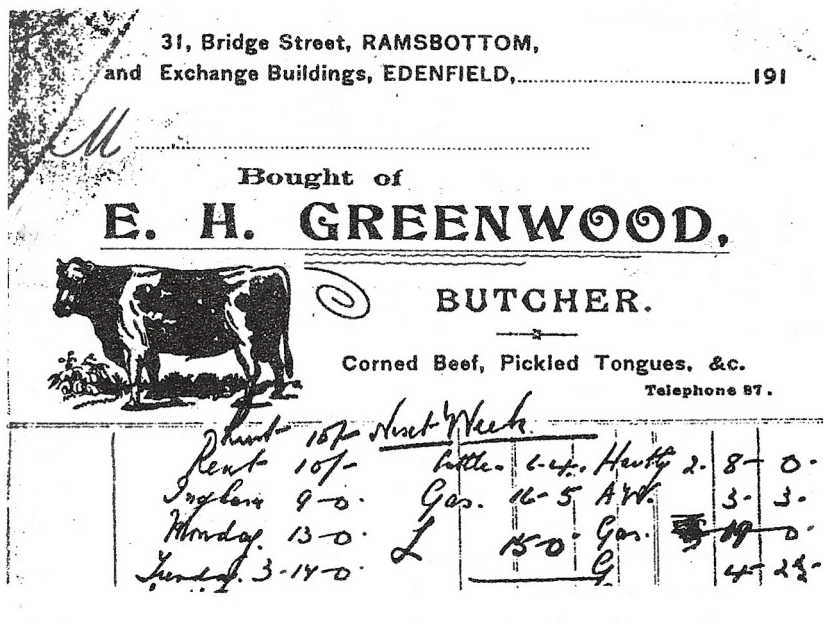 31, Bridge Street, RAMSBOTTOM,
and Exchange Buildings, EDENFIELD, 191
M
Bought of
E. H. GREENWOOD,
BUTCHER.
Corned Beef, Pickled Tongues, &c.
Telephone 87.
10/- Next Week
Rent 10/- 6-4. 2. 8-0.
9-0. Gas. 16-5 3-3.
Monday. 13-0 £ 15-0. Gas. 19 0
Tuesday. 3-14-0. G 4-2½-